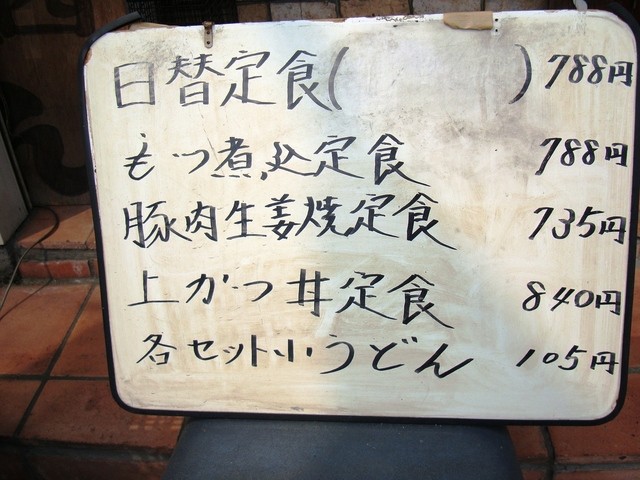 日替定食(　　　) 788円
もつ煮込定食 788円
豚肉生姜焼定食 735円
上かつ丼定食 840円
各セット小うどん 105円